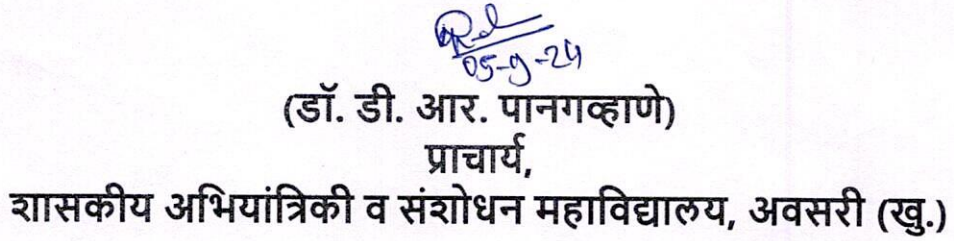 05-9-24
(डॉ. डी. आर. पानगव्हाणे)
प्राचार्य,
शासकीय अभियांत्रिकी व संशोधन महाविद्यालय, अवसरी (खु.)